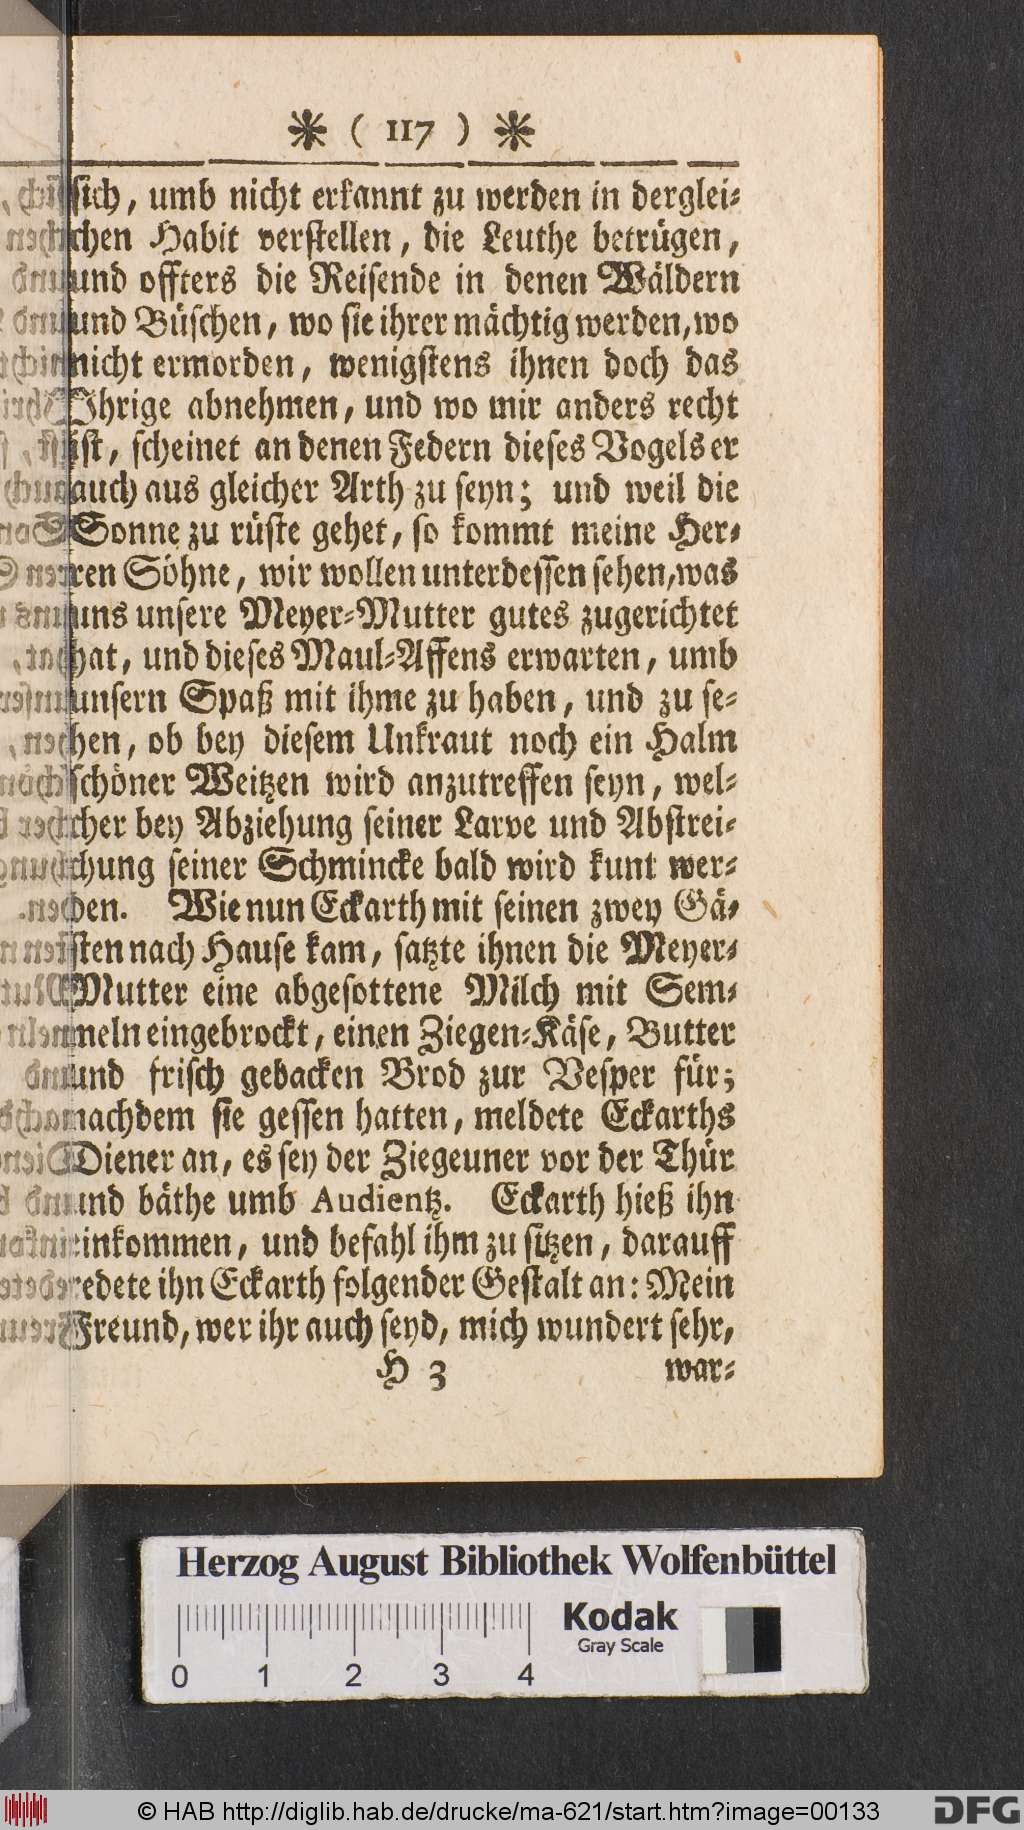 * ( 117 ) *
sich, umb nicht erkannt zu werden in derglei-
chen Habit verstellen, die Leuthe betrügen,
und offters die Reisende in denen Wäldern
und Büschen, wo sie ihrer mächtig werden, wo
nicht ermorden, wenigstens ihnen doch das
Ihrige abnehmen, und wo mir anders recht
ist, scheinet an denen Federn dieses Vogels er
auch aus gleicher Arth zu seyn; und weil die
Sonne zu rüste gehet, so kommt meine Her-
ren Söhne, wir wollen unterdessen sehen, was
uns unsere Meyer-Mutter gutes zugerichtet
hat, und dieses Maul-Affens erwarten, umb
unsern Spaß mit ihme zu haben, und zu se-
hen, ob bey diesem Unkraut noch ein Halm
schöner Weitzen wird anzutreffen seyn, wel-
cher bey Abziehung seiner Larve und Abstrei-
chung seiner Schmincke bald wird kunt wer-
den. Wie nun Eckarth mit seinen zwey Gä-
sten nach Hause kam, satzte ihnen die Meyer-
Mutter eine abgesottene Milch mit Sem-
meln eingebrockt, einen Ziegen-Käse, Butter
und frisch gebacken Brod zur Vesper für;
nachdem sie gessen hatten, meldete Eckarths
Diener an, es sey der Ziegeuner vor der Thür
und bäthe umb Audientz. Eckarth hieß ihn
einkommen, und befahl ihm zu sitzen, darauff
redete ihn Eckarth folgender Gestalt an: Mein
Freund, wer ihr auch seyd, mich wundert sehr,
H 3 war-
Herzog August Bibliothek Wolfenbüttel
Kodak
Gray Scale
0 1 2 3 4
© HAB http://diglib.hab.de/drucke/ma-621/start.htm?image=00133
DFG